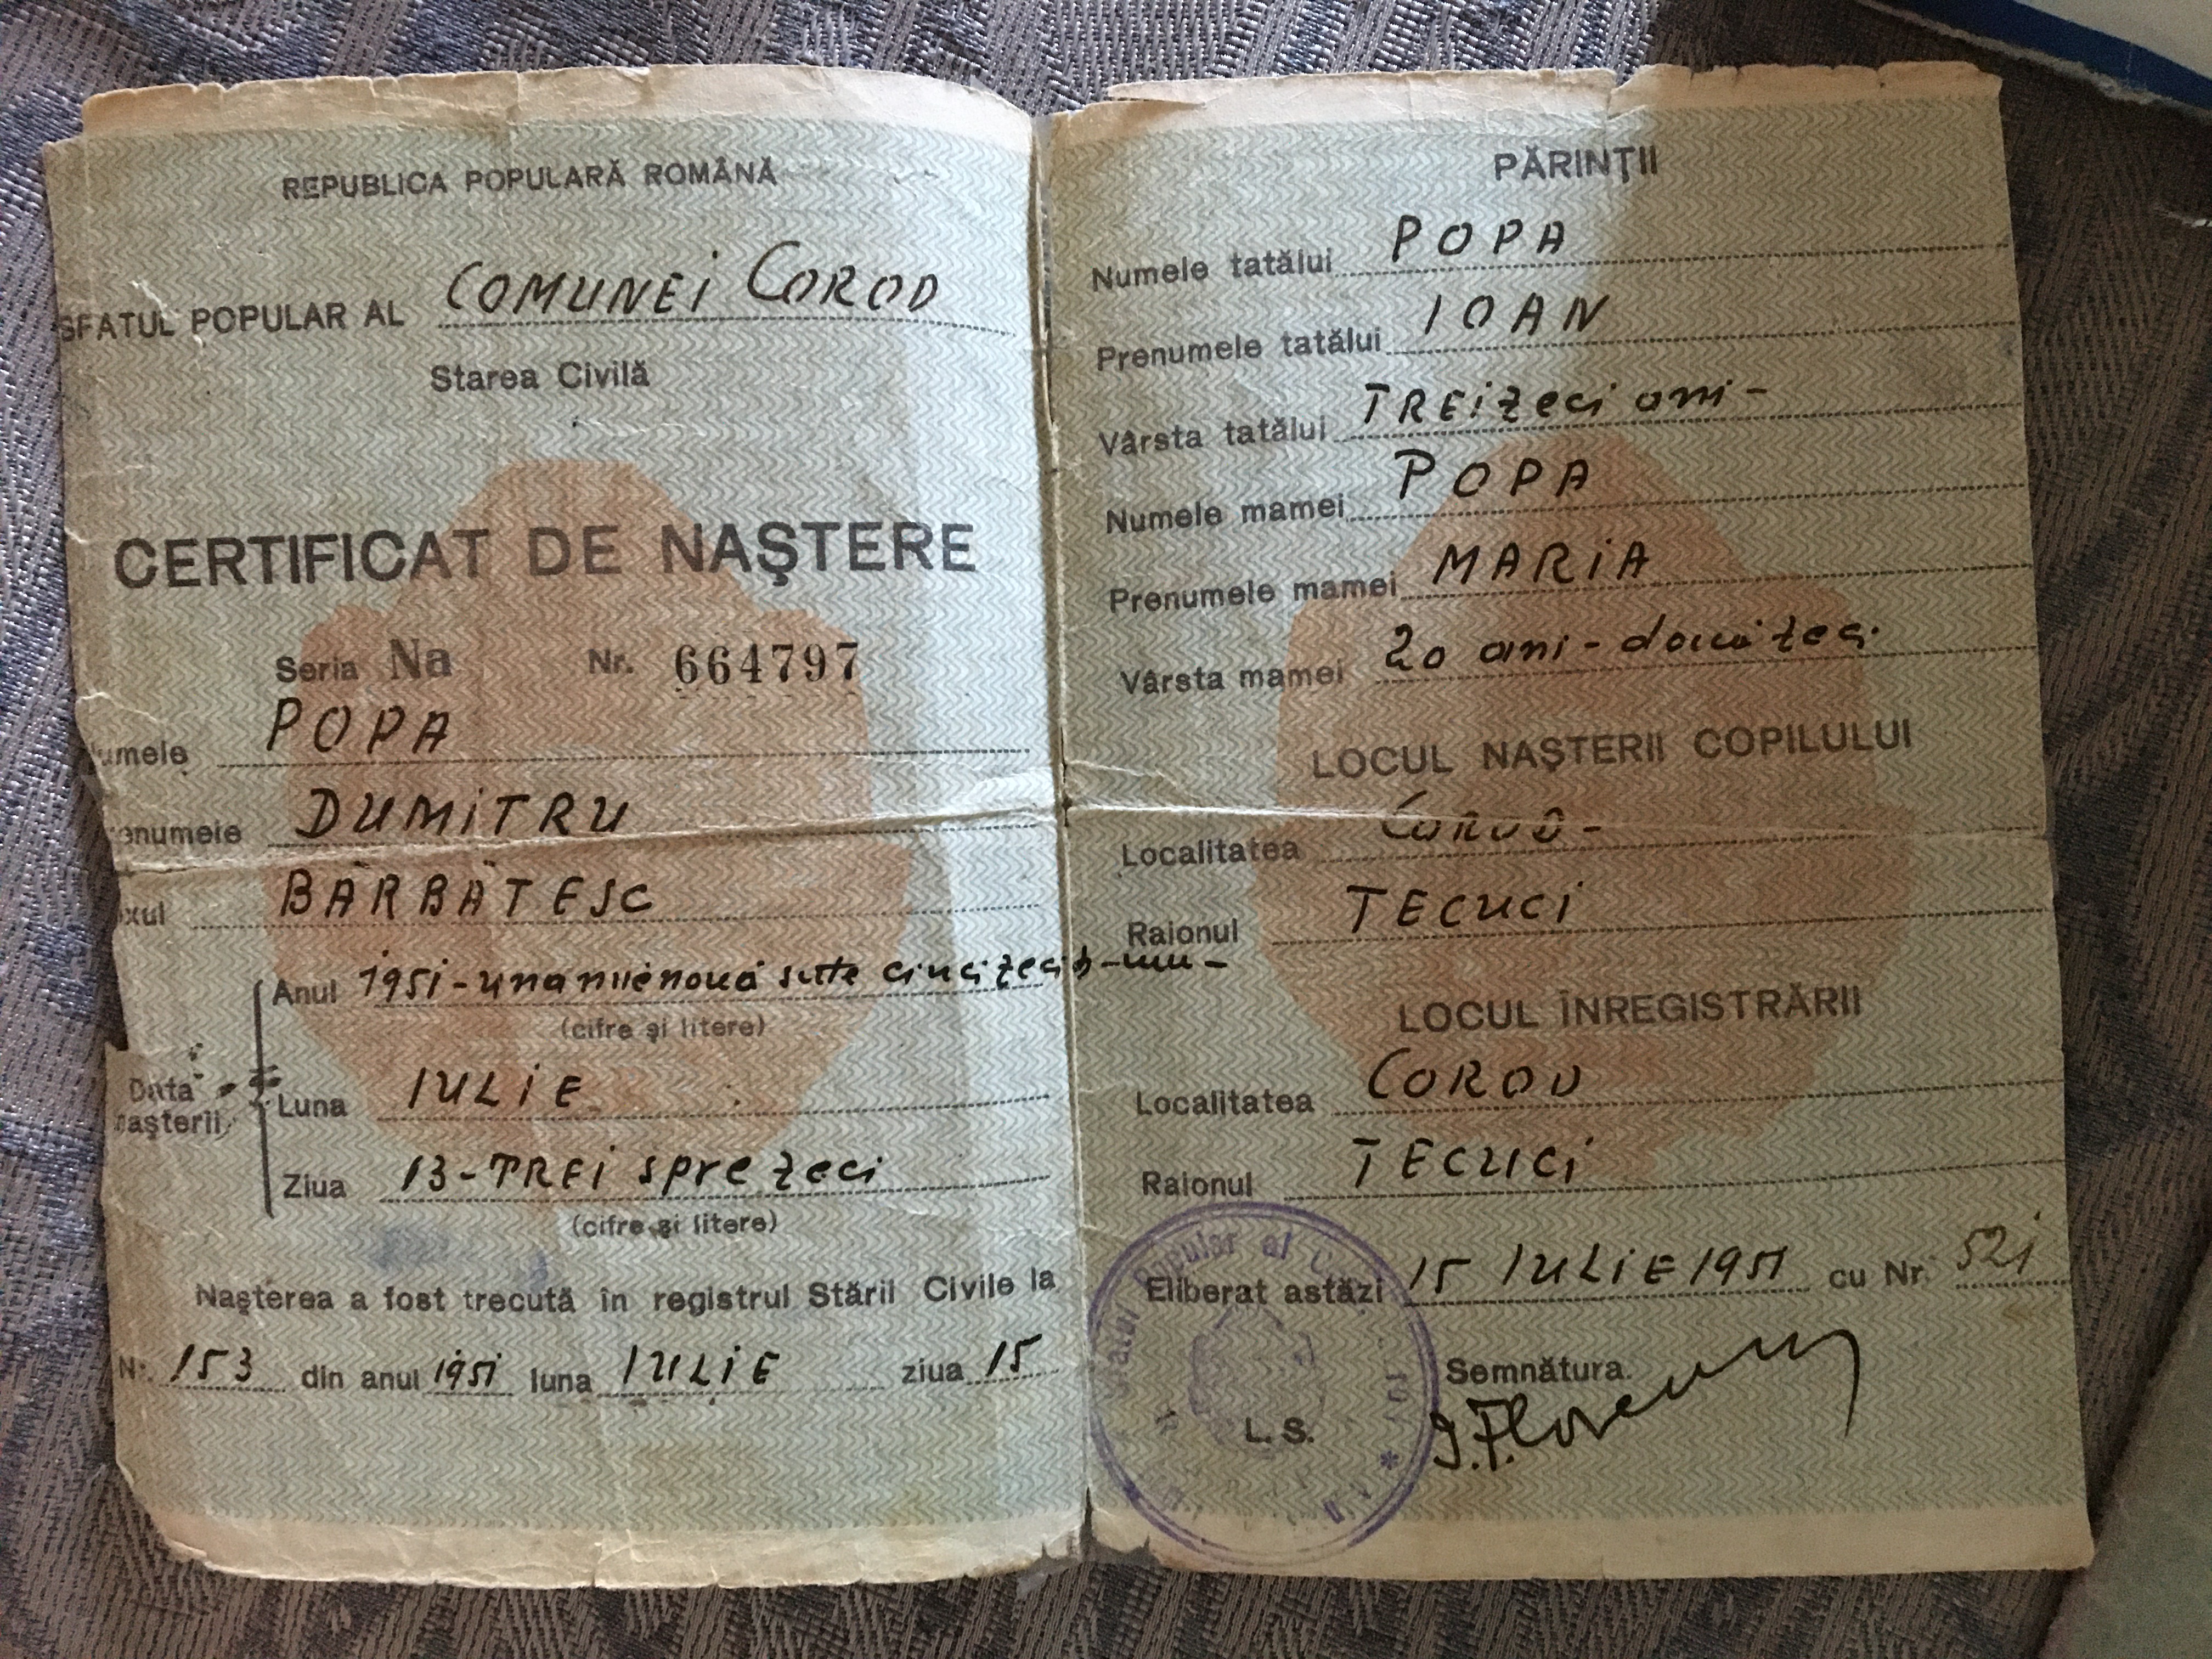 REPUBLICA POPULARĂ ROMÂNĂ
SFATUL POPULAR AL COMUNEI COROD
Starea Civilă
CERTIFICAT DE NAŞTERE
Seria Na Nr. 664797
umele POPA
enumele DUMITRU
xul BĂRBĂTESC
Data naşterii
Anul 1951 - una mie nouă sute cinci zeci
(cifre şi litere)
Luna IULIE
Ziua 13 - TREI sprezeci
(cifre şi litere)
Naşterea a fost trecută în registrul Stării Civile la
Nr. 153 din anul 1951 luna IULIE ziua 15
PĂRINŢII
Numele tatălui POPA
Prenumele tatălui IOAN
Vârsta tatălui TREIZECI ani -
Numele mamei POPA
Prenumele mamei MARIA
Vârsta mamei 20 ani - două zeci
LOCUL NAŞTERII COPILULUI
Localitatea COROD -
Raionul TECUCI
LOCUL ÎNREGISTRĂRII
Localitatea COROD
Raionul TECUCI
Eliberat astăzi 15 IULIE 1951 cu Nr. 521
Semnătura
L. S.
Popular al